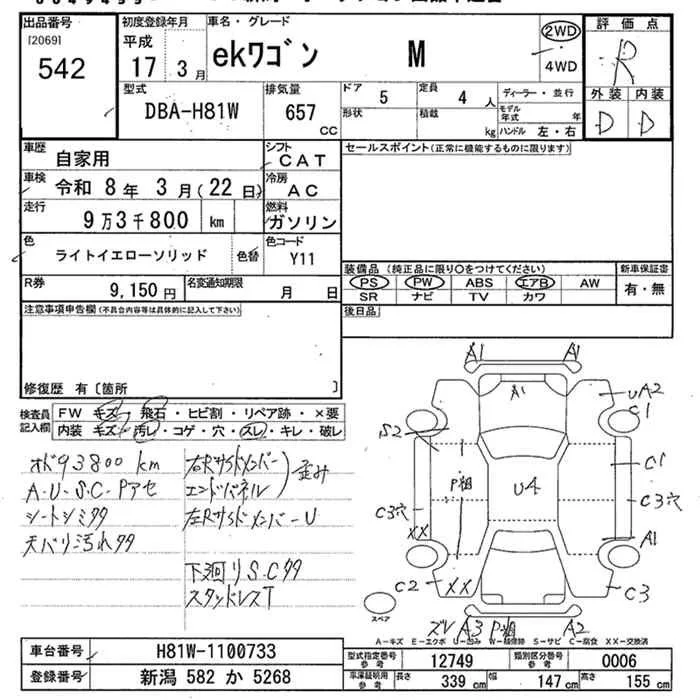 出品番号 初度登録年月 車名・グレード 評価点
[2069] 平成 ekワゴン M 2WD R
542 17 3月 4WD
型式 排気量 ドア 定員 ディーラー・並行 外装 内装
DBA-H81W 657 cc 5 4 人 モデル年式 年 D D
形状 積載 kg ハンドル 左・右
車歴 自家用 シフト CAT セールスポイント(正常に機能するものに限ります)
車検 令和 8年 3月(22日) 冷房 AC
走行 9万3千800 km 燃料 ガソリン
色 ライトイエローソリッド 色替 色コード Y11
R券 9,150円 名変通知期限 月 日
装備品(純正品に限り○をつけてください) 新車保証書
PS PW ABS エアB AW 有・無
SR ナビ TV カワ
注意事項申告欄(不具合内容等は具体的に記入して下さい) 後日品
修復歴 有〔箇所 〕
検査員記入欄 FW キズ・飛石・ヒビ割・リペア跡・×要
内装 キズ・汚レ・コゲ・穴・スレ・キレ・破レ
オド93800km 右Rサイドメンバー
A・U・S・C・Pアセ エンドパネル 歪み
シートシミタタ 左Rサイドメンバー U
天バリ汚れタタ
下廻りS.Cタタ
スタッドレスT
A1 A1
A1 UA2
C1
S2
P粗 U4 C1
C3穴 C3穴
XX A1
C2 XX C3
スペア
ズレ A3 P粗 A2
A-キズ E-エクボ U-凹み W-補修跡 S-サビ C-腐食 XX-交換済
車台番号 H81W-1100733 型式指定番号 参考 12749 類別区分番号 参考 0006
登録番号 新潟 582 か 5268 車庫証明用 参考 長さ 339 cm 幅 147 cm 高さ 155 cm